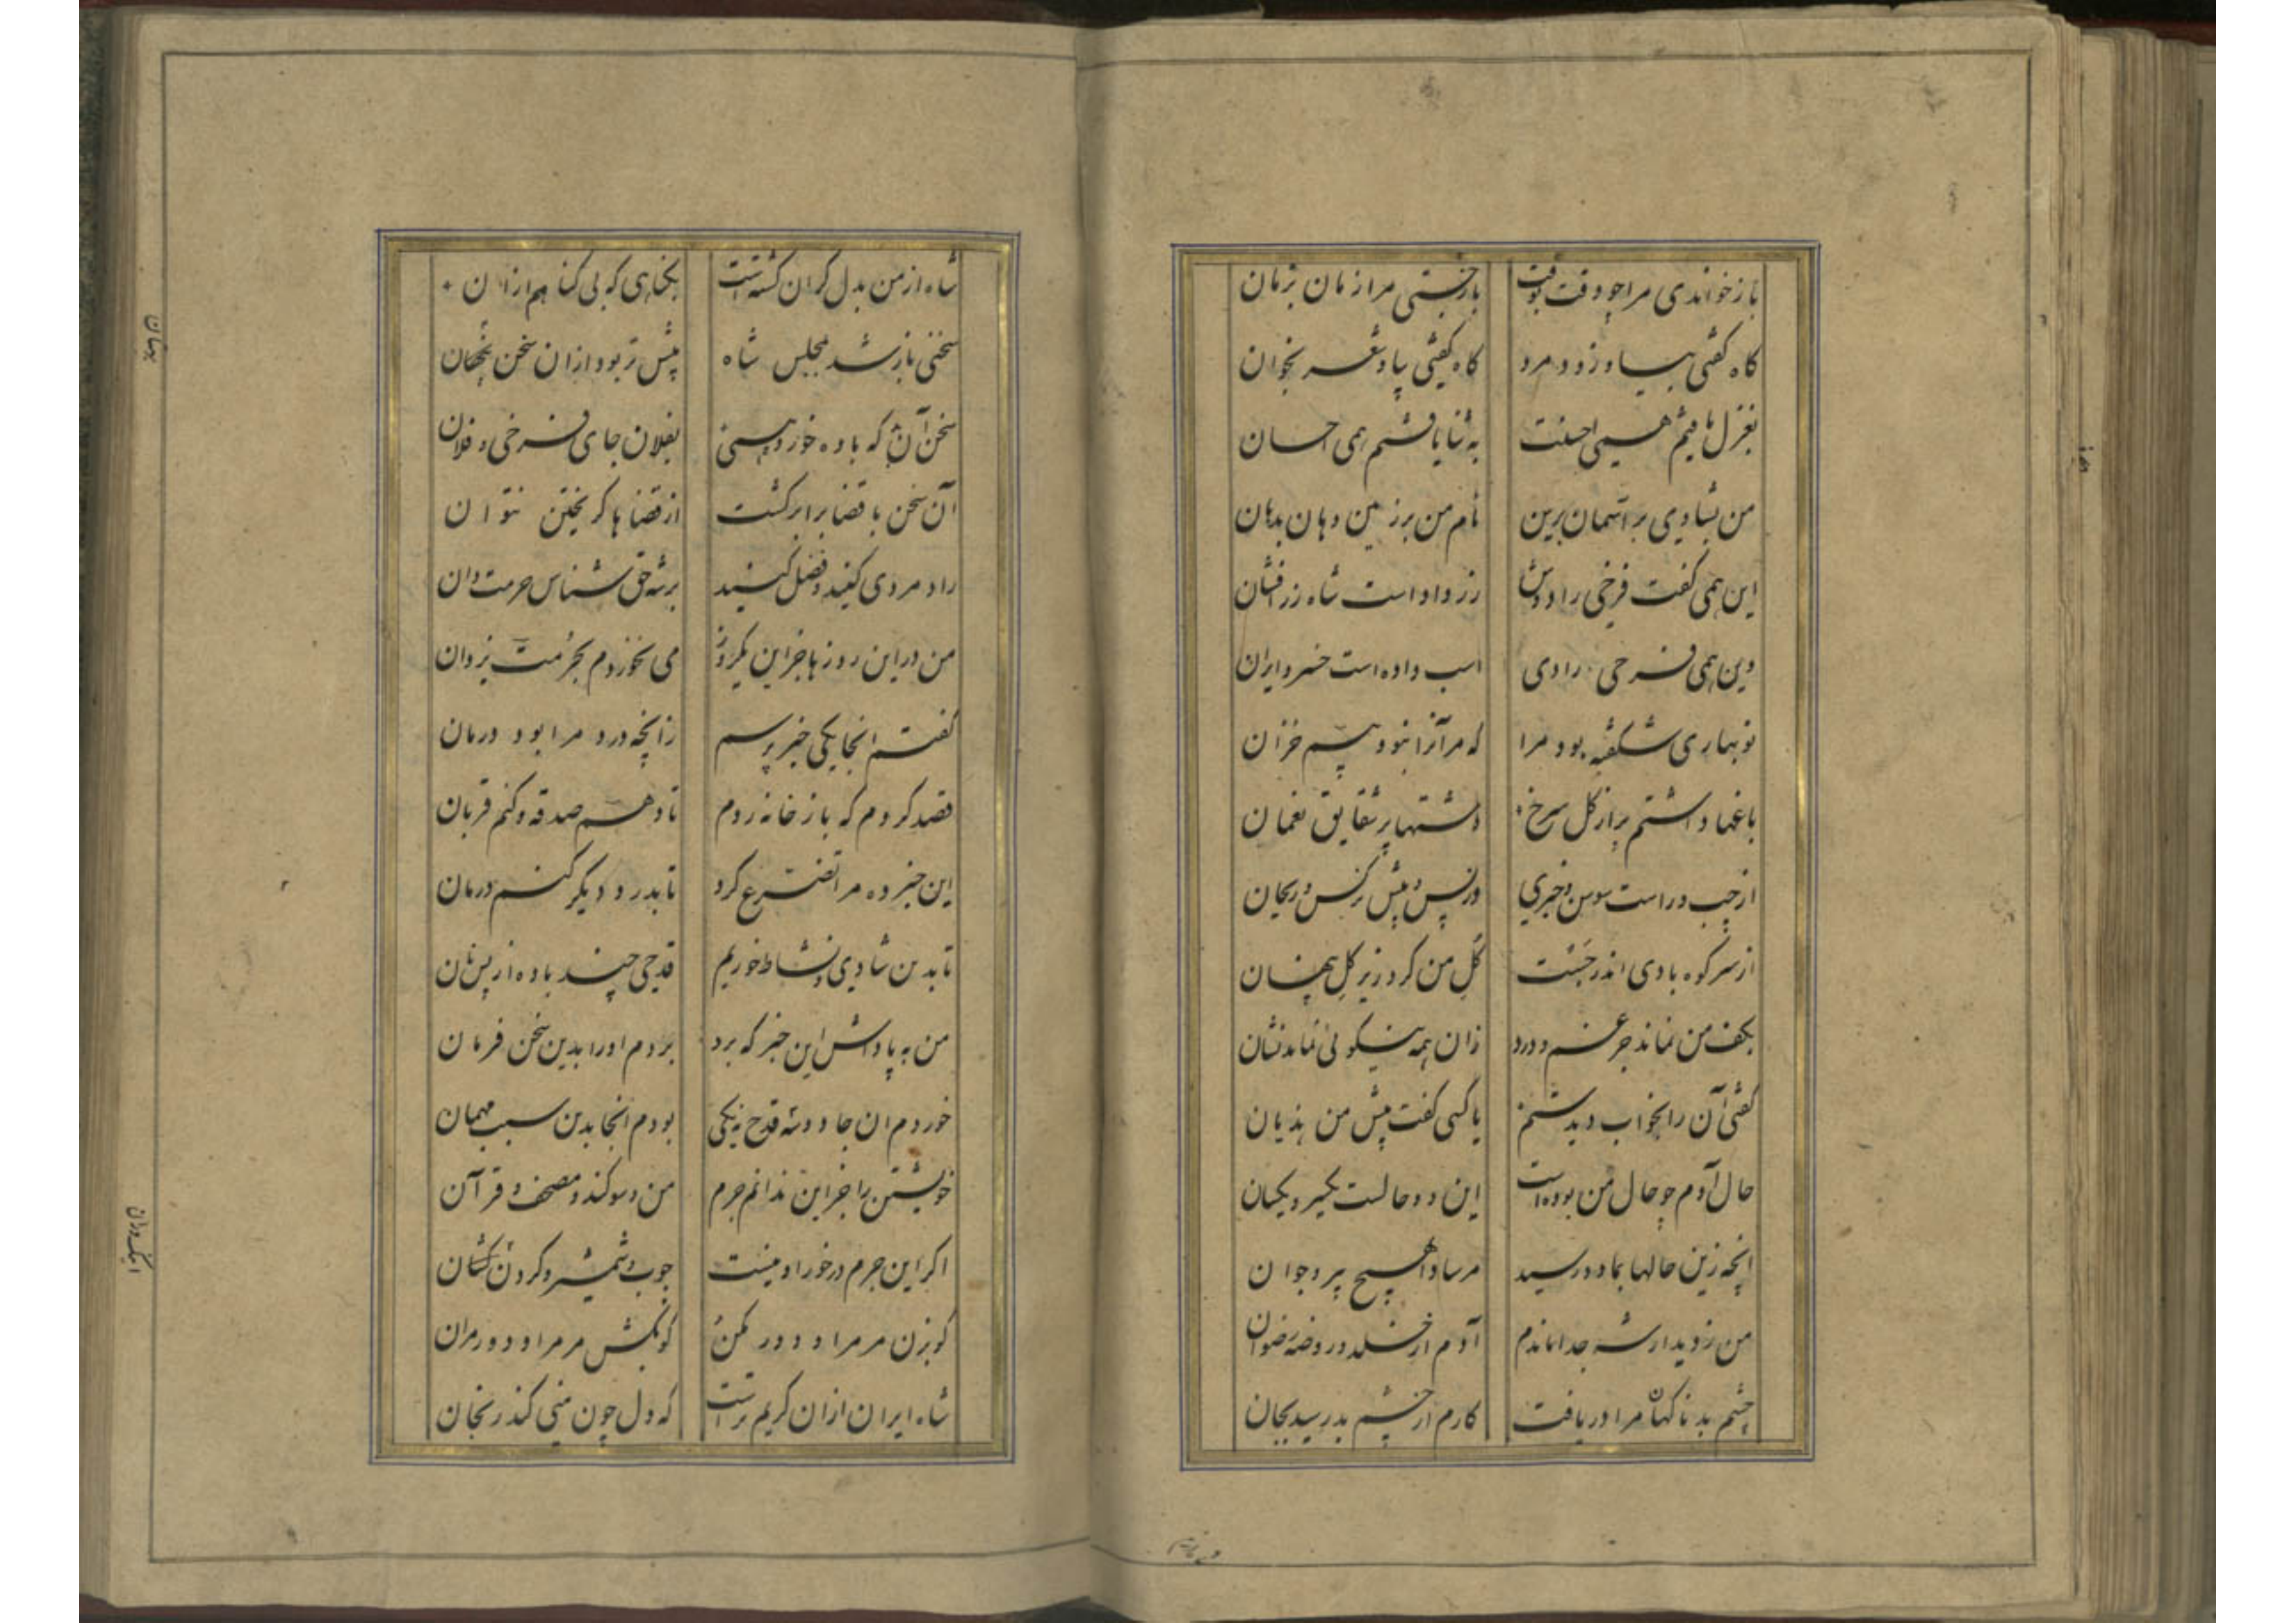 باز خواندی مرا چو وقت بوقت بازجستی مرا زمان بزمان
گاه گفتی بیا و رود مرد گاه گفتی بیا و شعر بخوان
بغزل یافتم همی احسنت به ثنا یافتم همی احسان
من بشادی بر آسمان برین نام من بر زمین دهان بدهان
این همی گفت فرخی را دوش زر داد است شاه زر افشان
وین همی فرخی را دی اسب داده است خسرو ایران
نو بهاری شکفته بود مرا که مر آنرا نبود بیم خزان
باغها داشتم پر از گل سرخ دشتها پر شقایق نعمان
از چپ و راست سوسن و خیری در پس و پیش نرگس و ریحان
از سر کوه بادی اندر جست گل من کرد زیر گل پنهان
بکف من نماند جز غم و درد زان همه نیکوئی نماند نشان
گفتی آن را بخواب دیدستم یا کسی گفت پیش من هذیان
حال آدم چو حال من بوده است این دو حالست یکسر و یکسان
آنچه زین حالها بما دو رسید مرسادا هیچ پیر و جوان
من ز دیدار شه جدا ماندم آدم از خلد و روضه رضوان
چشم بد ناگهان مرا دریافت کارم از چشم بد رسید بجان
شاه از من بدل گران گشته است بگناهی که بی گناهم ازان
سخنی باز شد بمجلس شاه بیشتر بود ازان سخن بهتان
سخن آن که باده خورد همی بفلان جای فرخی و فلان
آن سخن با قضا برابر گشت از قضاها گریختن نتوان
راد مردی کنید و فضل کنید بر شه حق شناس حرمت دان
من در این روزها جز این یکروز می نخوردم بحرمت یزدان
گفتم آنجا یکی خبر پرسم زانچه درد مرا بود درمان
قصد کردم که باز خانه روم تا دهم صدقه و کنم قربان
این خبر ده مرا تضرع کرد تا بدو درد دیگر کنم درمان
تا بدین شادی و نشاط خوریم قدحی چند باده از پس نان
من به پاداش این خبر که برد بردم او را بدین سخن فرمان
خوردم آن جا دو سه قدح نه یکی بودم آنجا بدین سبب مهمان
خویشتن را جز این ندانم جرم من و سوگند و مصحف و قرآن
اگر این جرم در خور ادبست چوب و شمشیر و گردن کشان
گو بزن مر مرا و دور مکن گو بکش مر مرا و دور مران
شاه ایران ازان کریمترست که دل چون منی کند رنجان